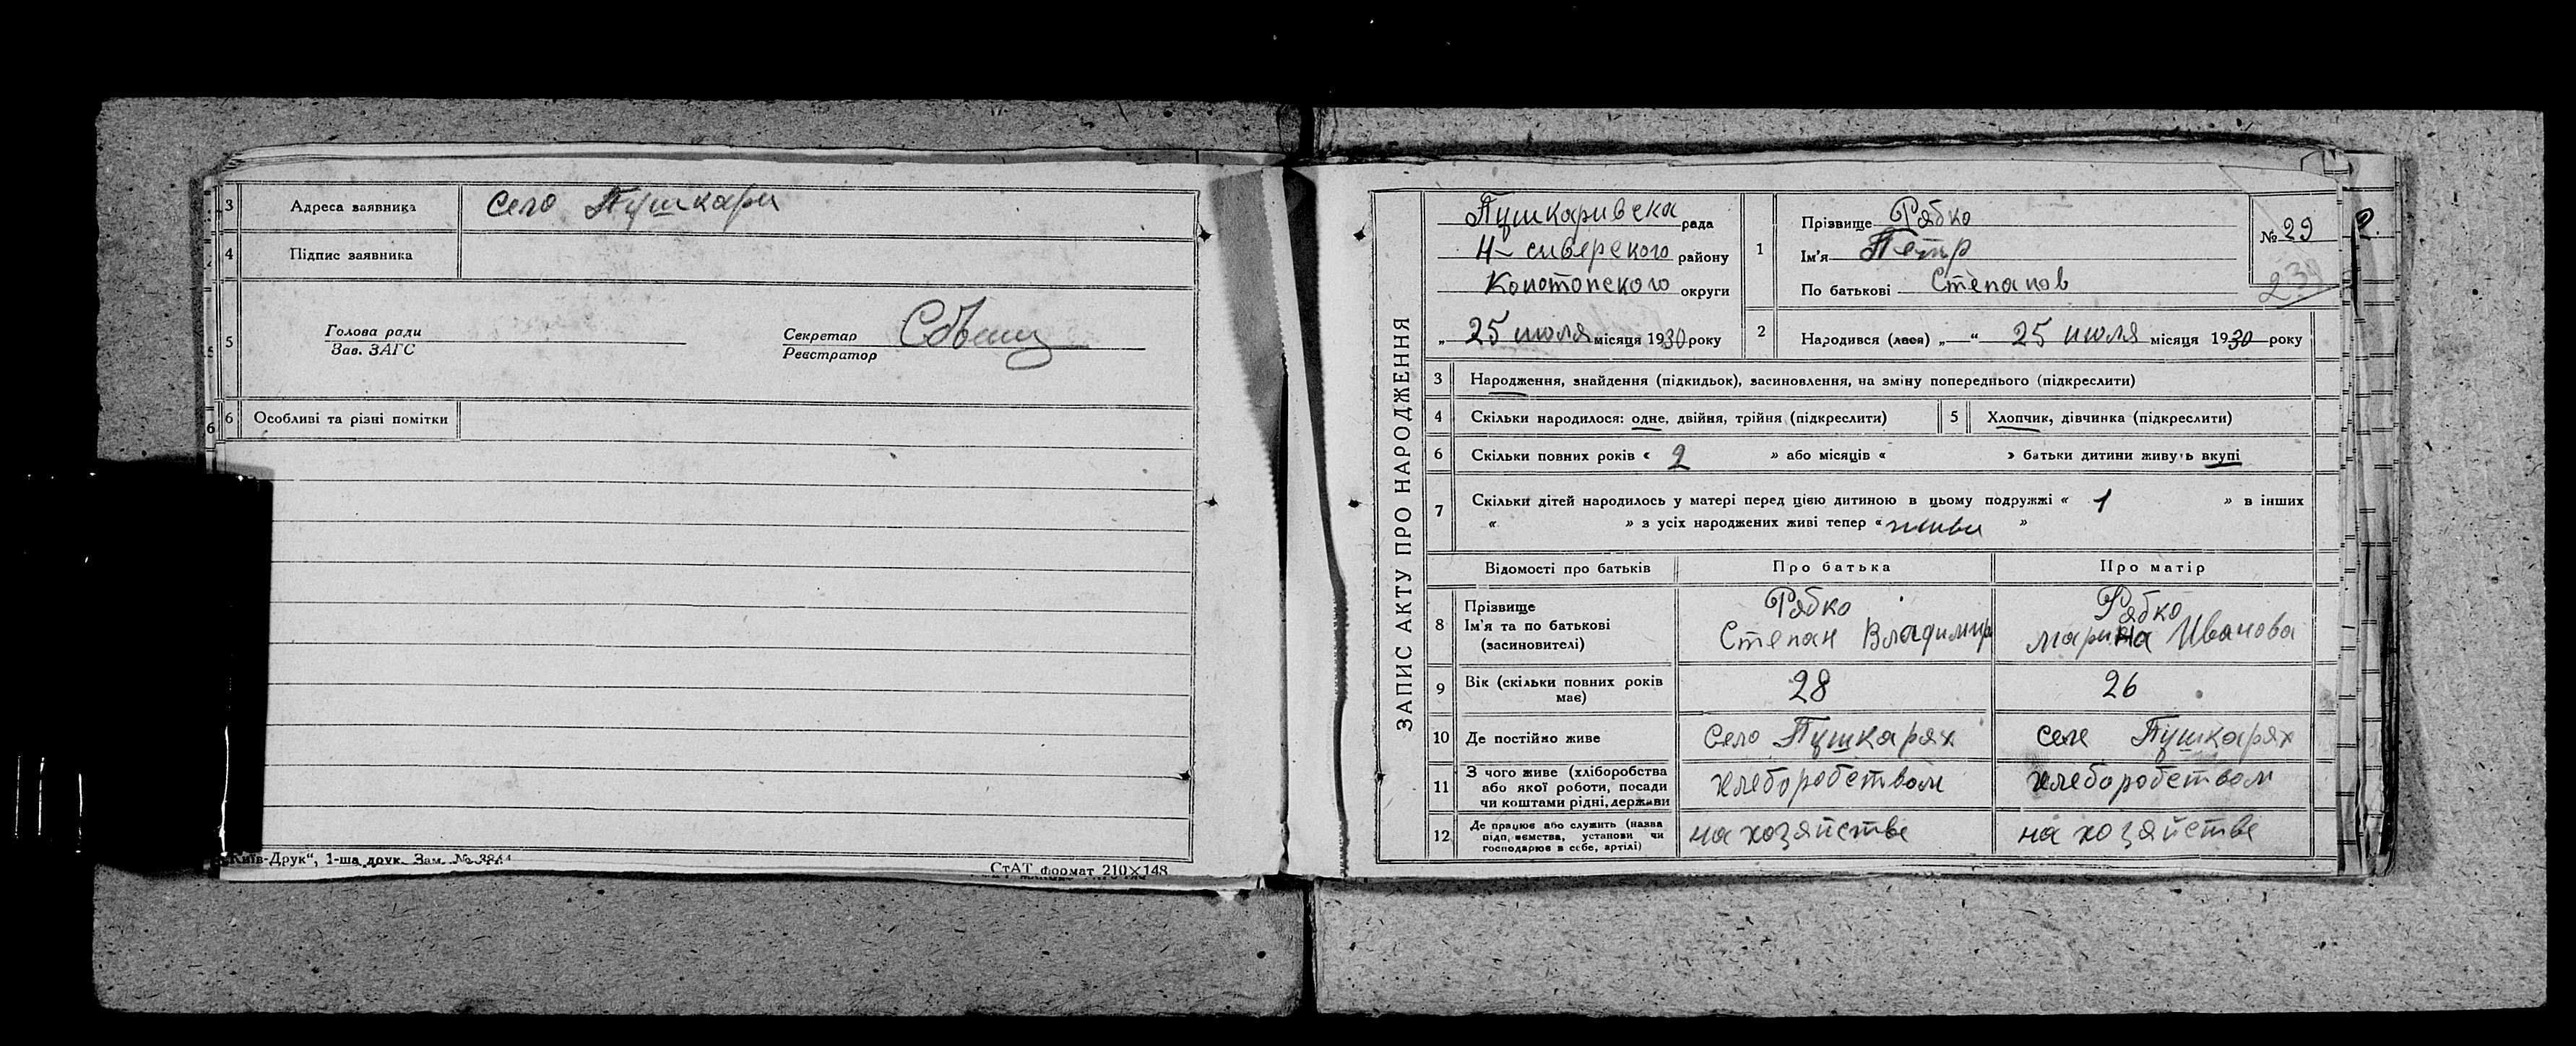 3 Адреса заявника село Пушкари
4 Підпис заявника
5 Голова ради
Зав. ЗАГС
Секретар
Реєстратор
6 Особливі та різні помітки
Київ-Друк“, 1-ша друк. Зам. №
СтАТ формат 210×148
ЗАПИС АКТУ ПРО НАРОДЖЕННЯ
Пушкаривска рада
Н-сиверского району
Конотопского округи
„ 25 июля місяця 1930 року
1 Прізвище Рябко
Ім'я Петр
По батькові Степанов
№ 29
2 Народився (лася) „—“ 25 июля місяця 1930 року
3 Народження, знайдення (підкидьок), засиновлення, на зміну попереднього (підкреслити)
4 Скільки народилося: одне, двійня, трійня (підкреслити)
5 Хлопчик, дівчинка (підкреслити)
6 Скільки повних років « 2 » або місяців « » батьки дитини живуть вкупі
7 Скільки дітей народилось у матері перед цією дитиною в цьому подружжі « 1 » в інших
« » з усіх народжених живі тепер « живи »
Відомості про батьків Про батька Про матір
8 Прізвище
Ім'я та по батькові
(засиновителі)
Рябко
Степан Владимир
Рябко
Марина Иванова
9 Вік (скільки повних років
має)
28 26
10 Де постійно живе Село Пушкарях селе Пушкарях
11 З чого живе (хліборобства
або якої роботи, посади
чи коштами рідні, держави
хлеборобством хлеборобством
12 Де працює або служить (назва
підприємства, установи чи
господарює в себе, артілі)
на хозяйстве на хозяйстве